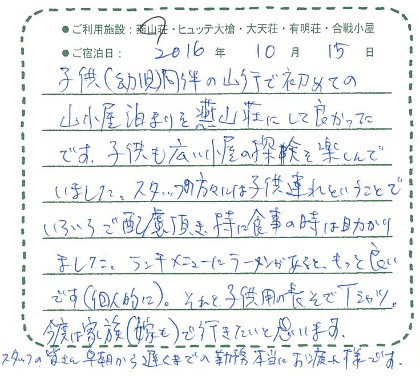 ●ご利用施設：燕山荘・ヒュッテ大槍・大天荘・有明荘・合戦小屋
●ご宿泊日： 2016 年 10 月 15 日
子供(幼児)同伴の山行で初めての
山小屋泊まりを燕山荘にして良かった
です。子供も広い小屋の探検を楽しんで
いました。スタッフの方々には子供連れということで
いろいろで配慮頂き、特に食事の時は助かり
ました。ランチメニューにラーメンがあると、もっと良い
です(個人的に)。それと子供用の長そでTシャツ。
今度は家族(嫁も)で行きたいと思います。
スタッフの皆さん早朝から遅くまでの勤務本当にお疲れ様です。